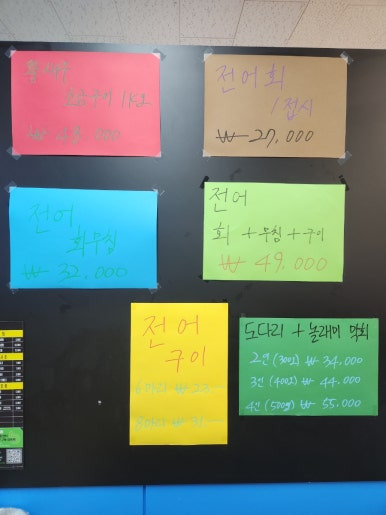 소금구이 1kg
전어회
1접시
₩ 27,000
전어
회무침
₩ 32,000
전어
회 + 무침 + 구이
₩ 49,000
전어
구이
6마리 ₩
8마리 ₩
도다리 + 놀래미 막회
2인 (300g) ₩ 34,000
3인 (400g) ₩ 44,000
4인 (500g) ₩ 55,000